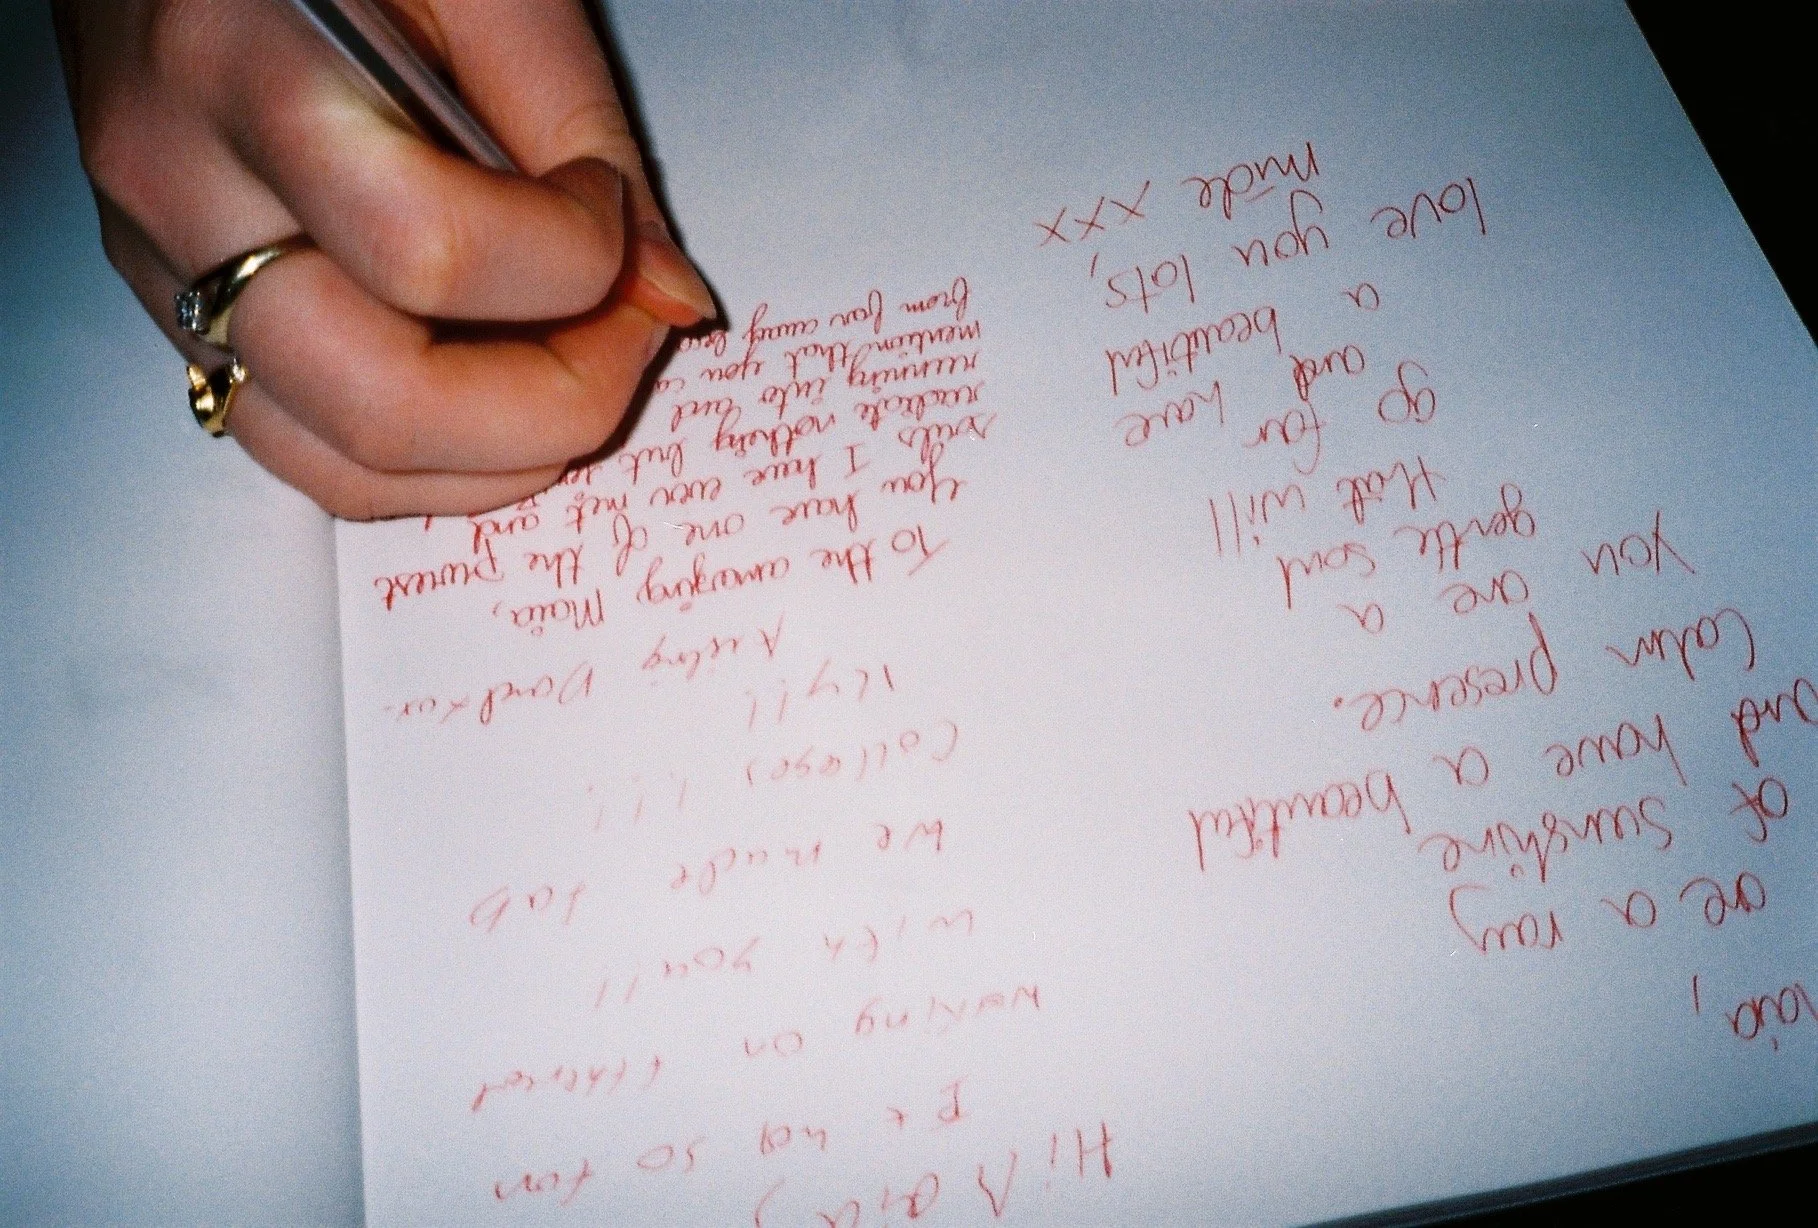 are a ray
of sunshine
and have a beautiful
calm presence.
You are a
gentle soul
that will
go far and
have a beautiful
love you lots,
mide xxx
Hi Maia,
It was so fun
Working on
with you!!
We made fab
Collages!!!
ily!!
Aisling
To the amazing Maia,
You have one of the purest
souls I have ever met and
radiate nothing but
running into and
mention that you
from far away